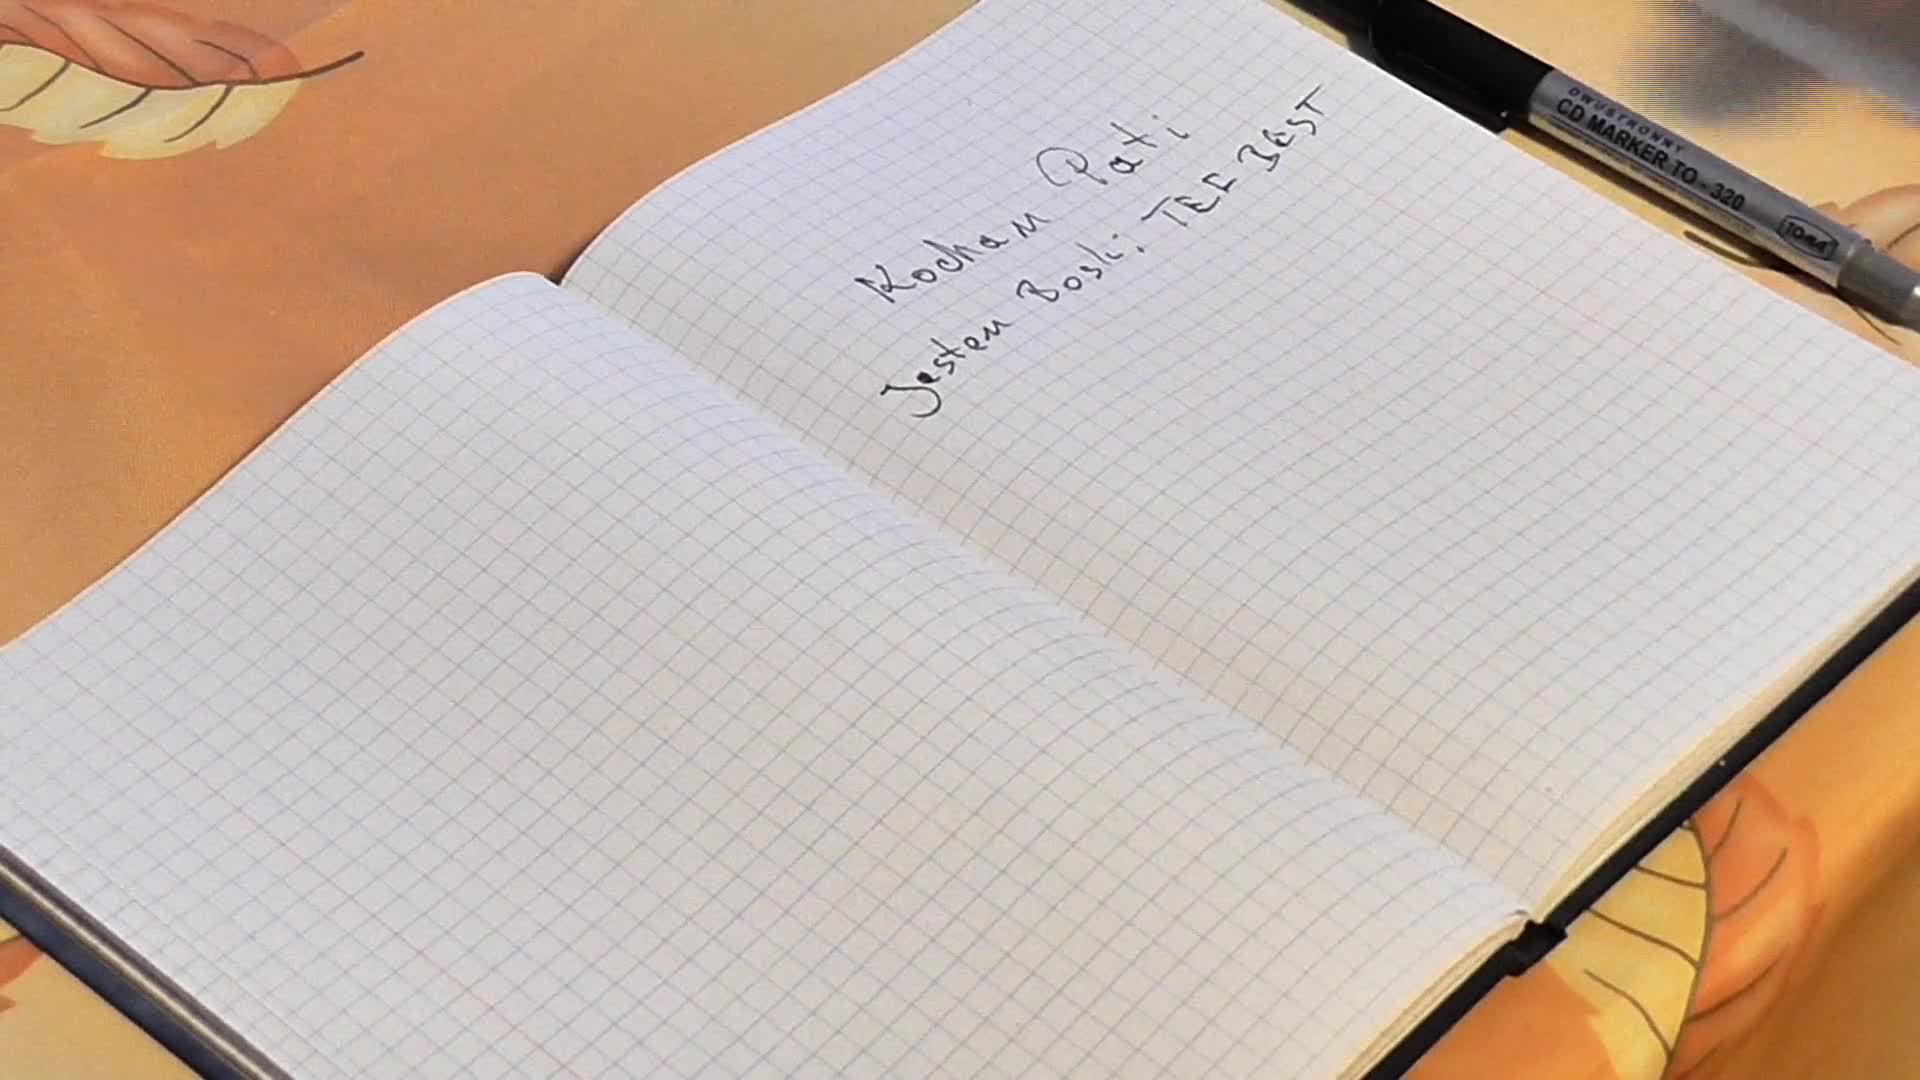 Kocham Pati
Jestem Boski. TEE BEST
DWUSTRONNY
CD MARKER TO - 320
TOMA